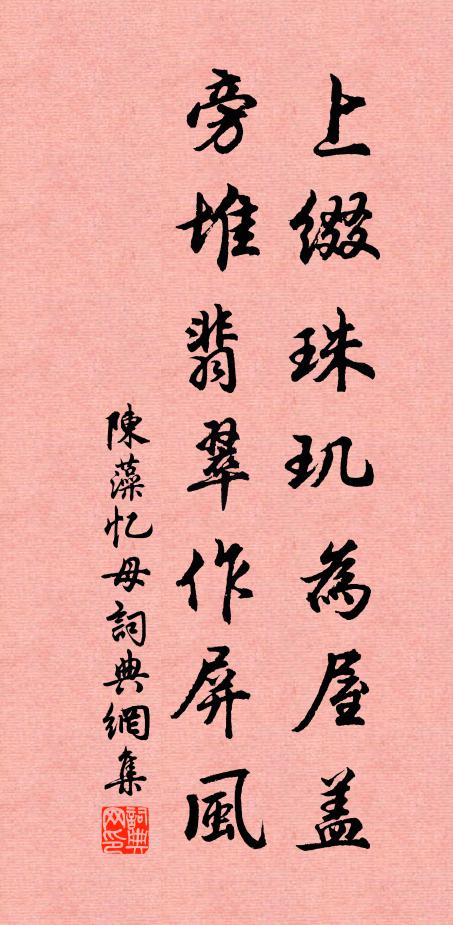 上缀珠玑為屋盖
旁堆翡翠作屏風
陳藻忆母詞典網集
詞典网印